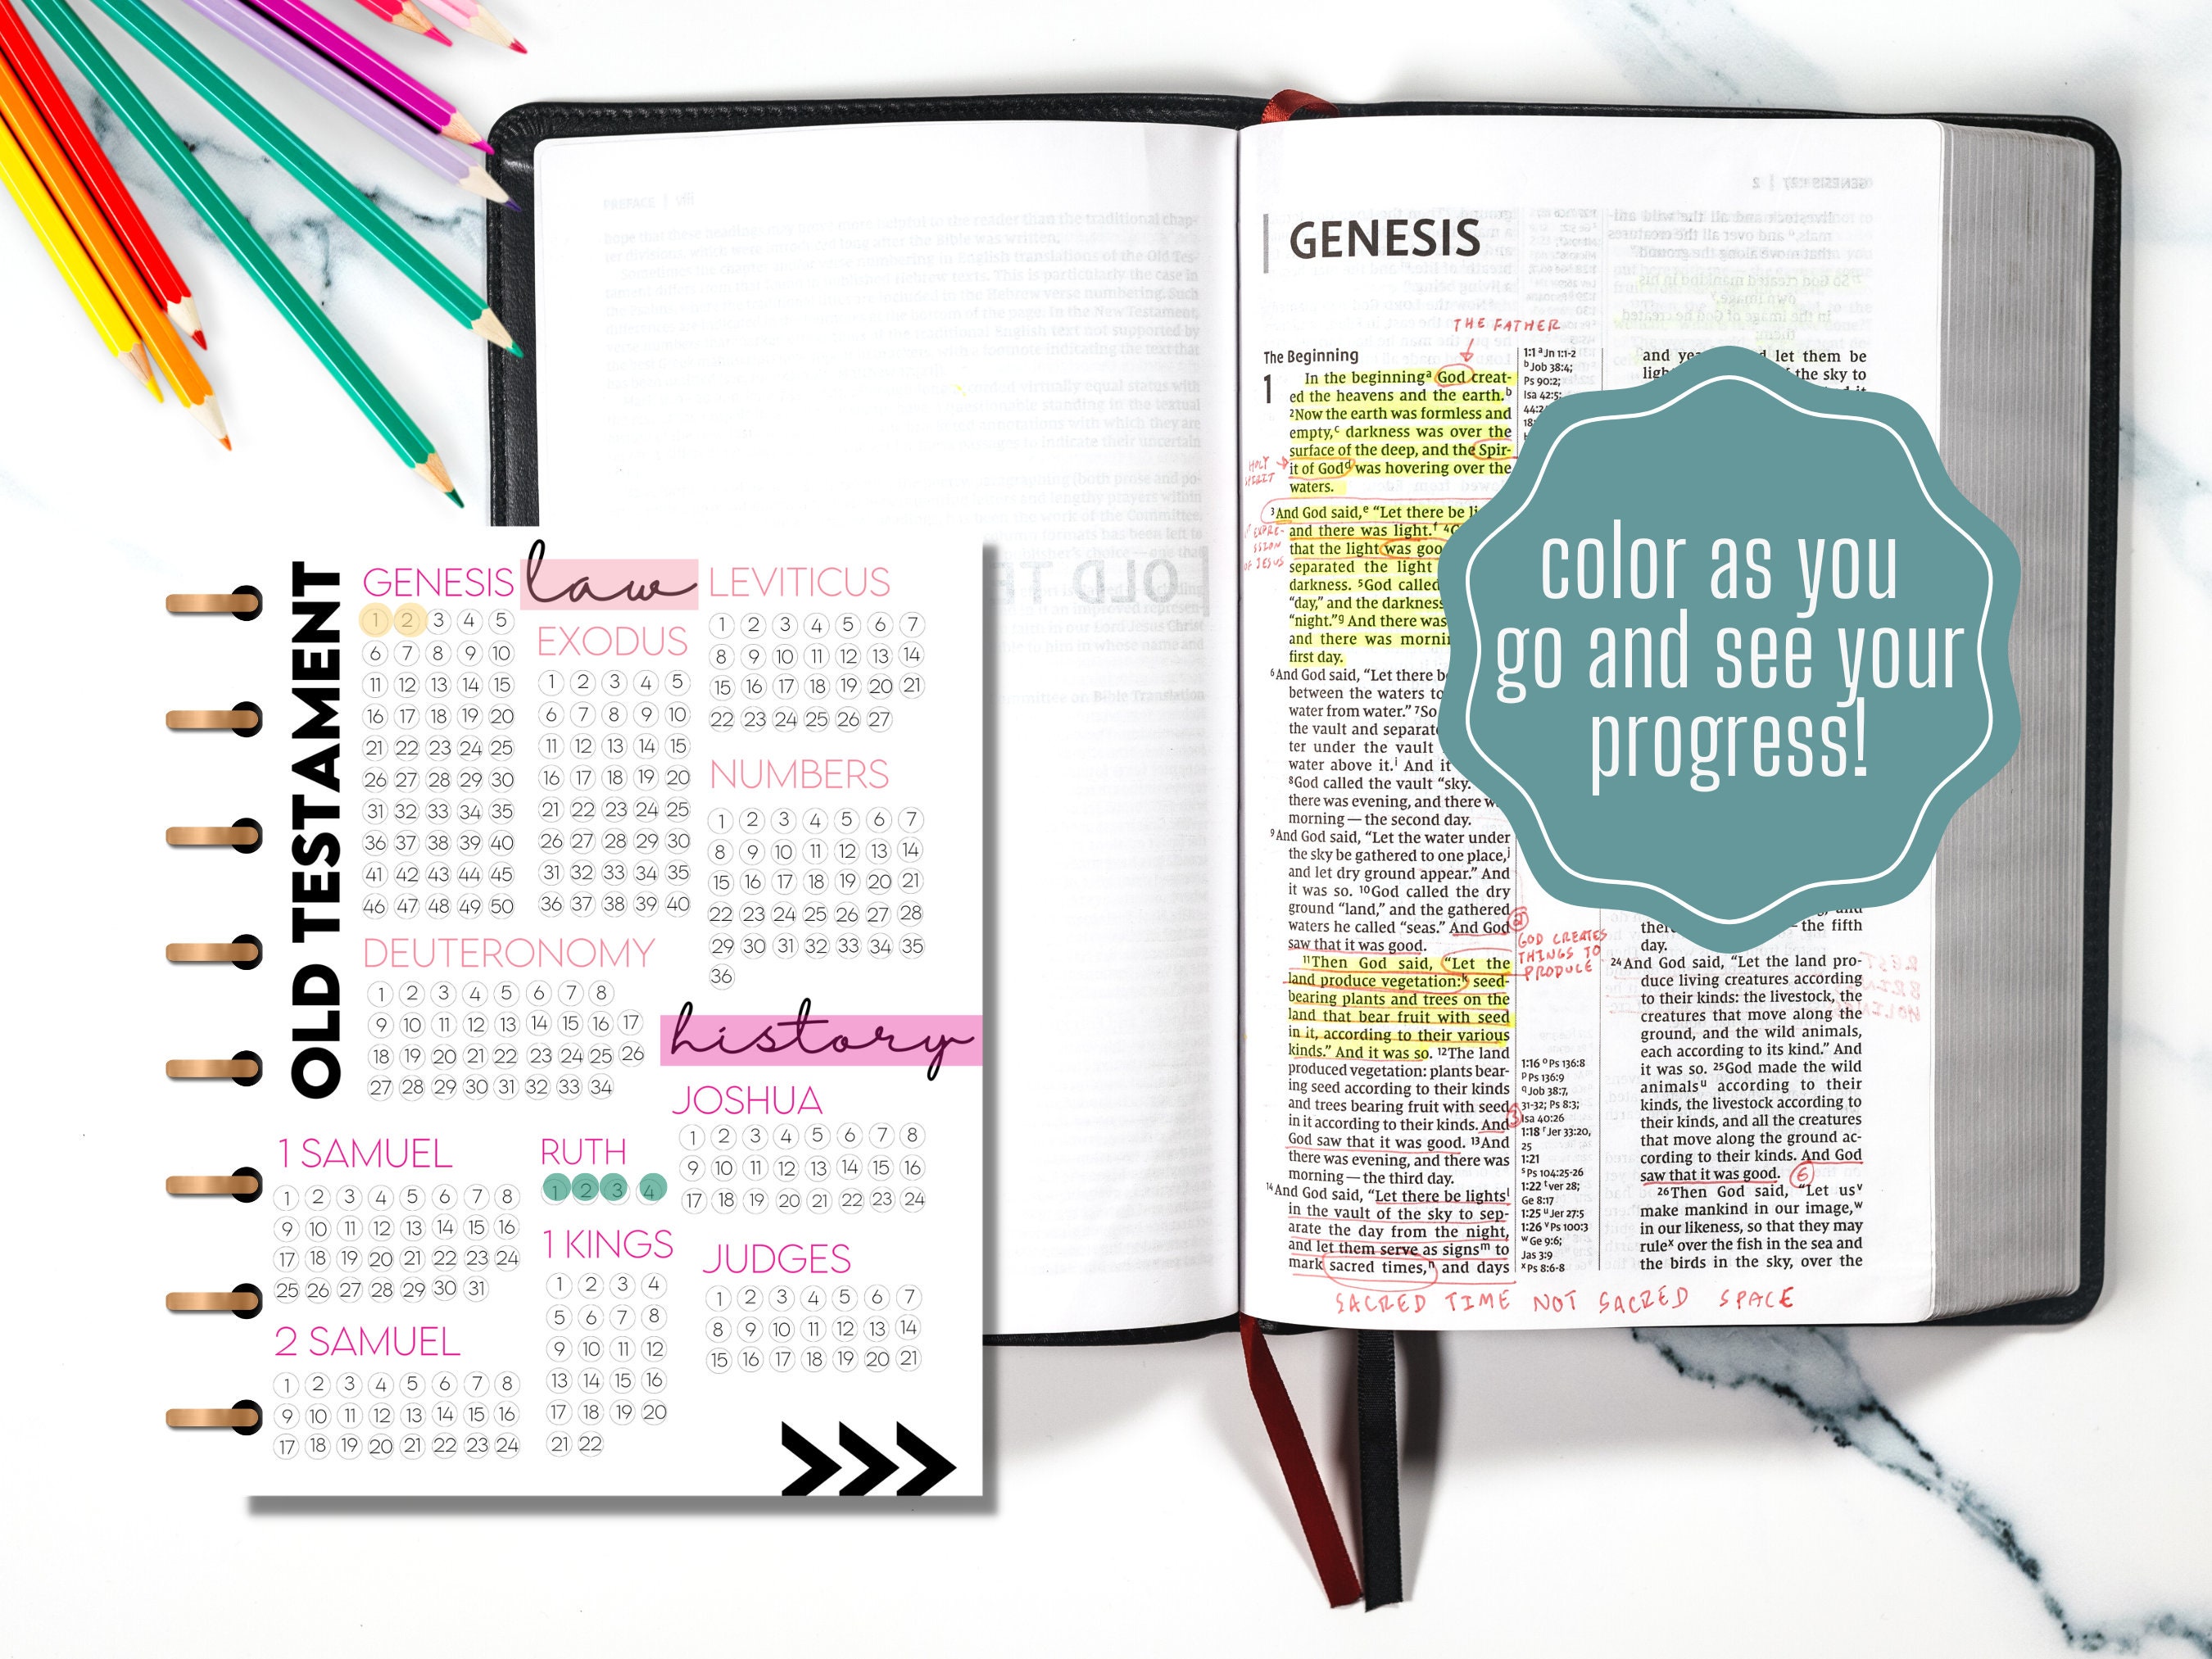 OLD TESTAMENT
GENESIS
1 2 3 4 5
6 7 8 9 10
11 12 13 14 15
16 17 18 19 20
21 22 23 24 25
26 27 28 29 30
31 32 33 34 35
36 37 38 39 40
41 42 43 44 45
46 47 48 49 50
law
EXODUS
1 2 3 4 5
6 7 8 9 10
11 12 13 14 15
16 17 18 19 20
21 22 23 24 25
26 27 28 29 30
31 32 33 34 35
36 37 38 39 40
LEVITICUS
1 2 3 4 5 6 7
8 9 10 11 12 13 14
15 16 17 18 19 20 21
22 23 24 25 26 27
NUMBERS
1 2 3 4 5 6 7
8 9 10 11 12 13 14
15 16 17 18 19 20 21
22 23 24 25 26 27 28
29 30 31 32 33 34 35
36
DEUTERONOMY
1 2 3 4 5 6 7 8
9 10 11 12 13 14 15 16 17
18 19 20 21 22 23 24 25 26
27 28 29 30 31 32 33 34
history
JOSHUA
1 2 3 4 5 6 7 8
9 10 11 12 13 14 15 16
17 18 19 20 21 22 23 24
JUDGES
1 2 3 4 5 6 7
8 9 10 11 12 13 14
15 16 17 18 19 20 21
RUTH
1 2 3 4
1 SAMUEL
1 2 3 4 5 6 7 8
9 10 11 12 13 14 15 16
17 18 19 20 21 22 23 24
25 26 27 28 29 30 31
2 SAMUEL
1 2 3 4 5 6 7 8
9 10 11 12 13 14 15 16
17 18 19 20 21 22 23 24
1 KINGS
1 2 3 4
5 6 7 8
9 10 11 12
13 14 15 16
17 18 19 20
21 22
PREFACE | viii
GENESIS
THE FATHER
The Beginning
1 In the beginningᵃ God creat-
ed the heavens and the earth.ᵇ
²Now the earth was formless and
empty,ᶜ darkness was over the
surface of the deep, and the Spir-
it of Godᵈ was hovering over the
waters.
HOLY
SPIRIT
³And God said,ᵉ “Let there be
and there was light.ᶠ
that the light was
separated the light
darkness. ⁵God called
“day,” and the darkness
“night.”ᵍ And there was
and there was
first day.
EXPRE-
SSION
OF JESUS
⁶And God said, “Let there
between the waters to
water from water.” ⁷So
the vault and
ter under the vault
above it.ⁱ And it
⁸God called the vault “sky.
there was evening, and there
morning—the second day.
⁹And God said, “Let the water under
the sky be gathered to one place,ʲ
and let dry ground appear.” And
it was so. ¹⁰God called the dry
ground “land,” and the gathered
waters he called “seas.” And God
saw that it was good.
2
GOD CREATES
THINGS TO
PRODUCE
¹¹Then God said, “Let the
land produce vegetation:ᵏ seed-
bearing plants and trees on the
land that bear fruit with seed
in it, according to their various
kinds.” And it was so. ¹²The land
produced vegetation: plants bear-
ing seed according to their kinds
and trees bearing fruit with seed
in it according to their kinds. And
God saw that it was good. ¹³And
there was evening, and there was
morning—the third day.
3
¹⁴And God said, “Let there be lightsˡ
in the vault of the sky to sep-
arate the day from the night,
and let them serve as signsᵐ to
mark sacred times,ⁿ and days
1:1 ᵃJn 1:1-2
ᵇJob 38:4;
Ps 90:2;
Isa 42:5;
1:16 ᵒPs 136:8
ᵖPs 136:9
qJob 38:7,
31-32; Ps 8:3;
Isa 40:26
1:18 ʳJer 33:20,
25
1:21
ˢPs 104:25-26
1:22 ᵗver 28;
Ge 8:17
1:25 ᵘJer 27:5
1:26 ᵛPs 100:3
ʷGe 9:6;
Jas 3:9
ˣPs 8:6-8
let them be
the sky to
color as you
go and see your
progress!
the fifth
day.
²⁴And God said, “Let the land pro-
duce living creatures according
to their kinds: the livestock, the
creatures that move along the
ground, and the wild animals,
each according to its kind.” And
it was so. ²⁵God made the wild
animalsᵘ according to their
kinds, the livestock according to
their kinds, and all the creatures
that move along the ground ac-
cording to their kinds. And God
saw that it was good. 6
²⁶Then God said, “Let usᵛ
make mankind in our image,ʷ
in our likeness, so that they may
ruleˣ over the fish in the sea and
the birds in the sky, over the
SACRED TIME NOT SACRED SPACE